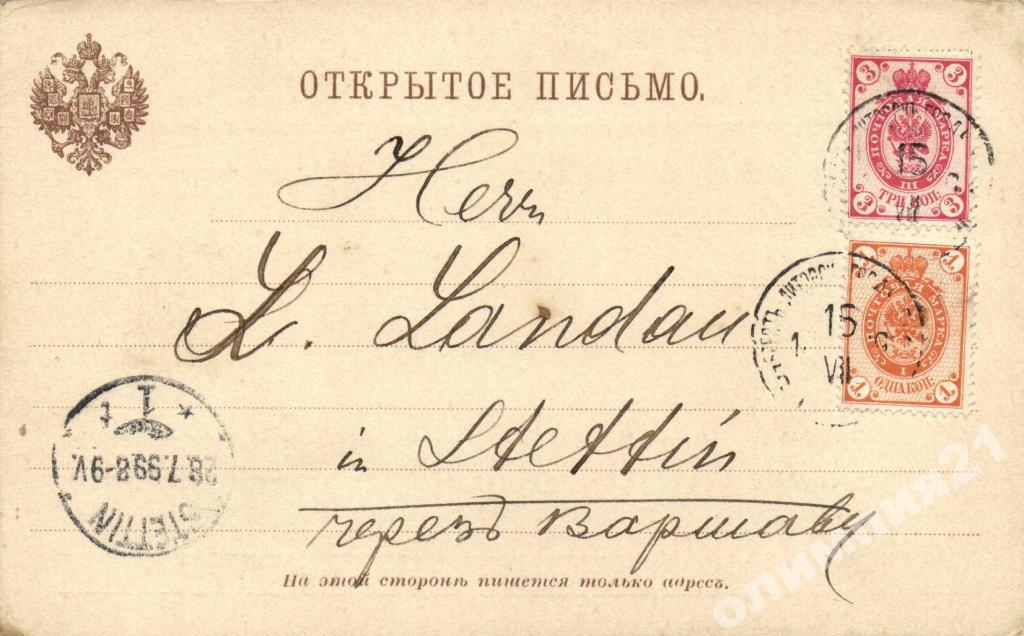 ОТКРЫТОЕ ПИСЬМО.
Herr
L. Landau
in Stettin
черезъ Варшаву
На этой сторонѣ пишется только адресъ.
3 3
ПОЧТОВАЯ МАРКА
III
ТРИ КОП.
3 3
15
VII
1 1
ПОЧТОВАЯ МАРКА
I
ОДНА КОП.
1 1
1. 15
VII
STETTIN
28.7.99.8-9V.
* 1 t
олимпия21